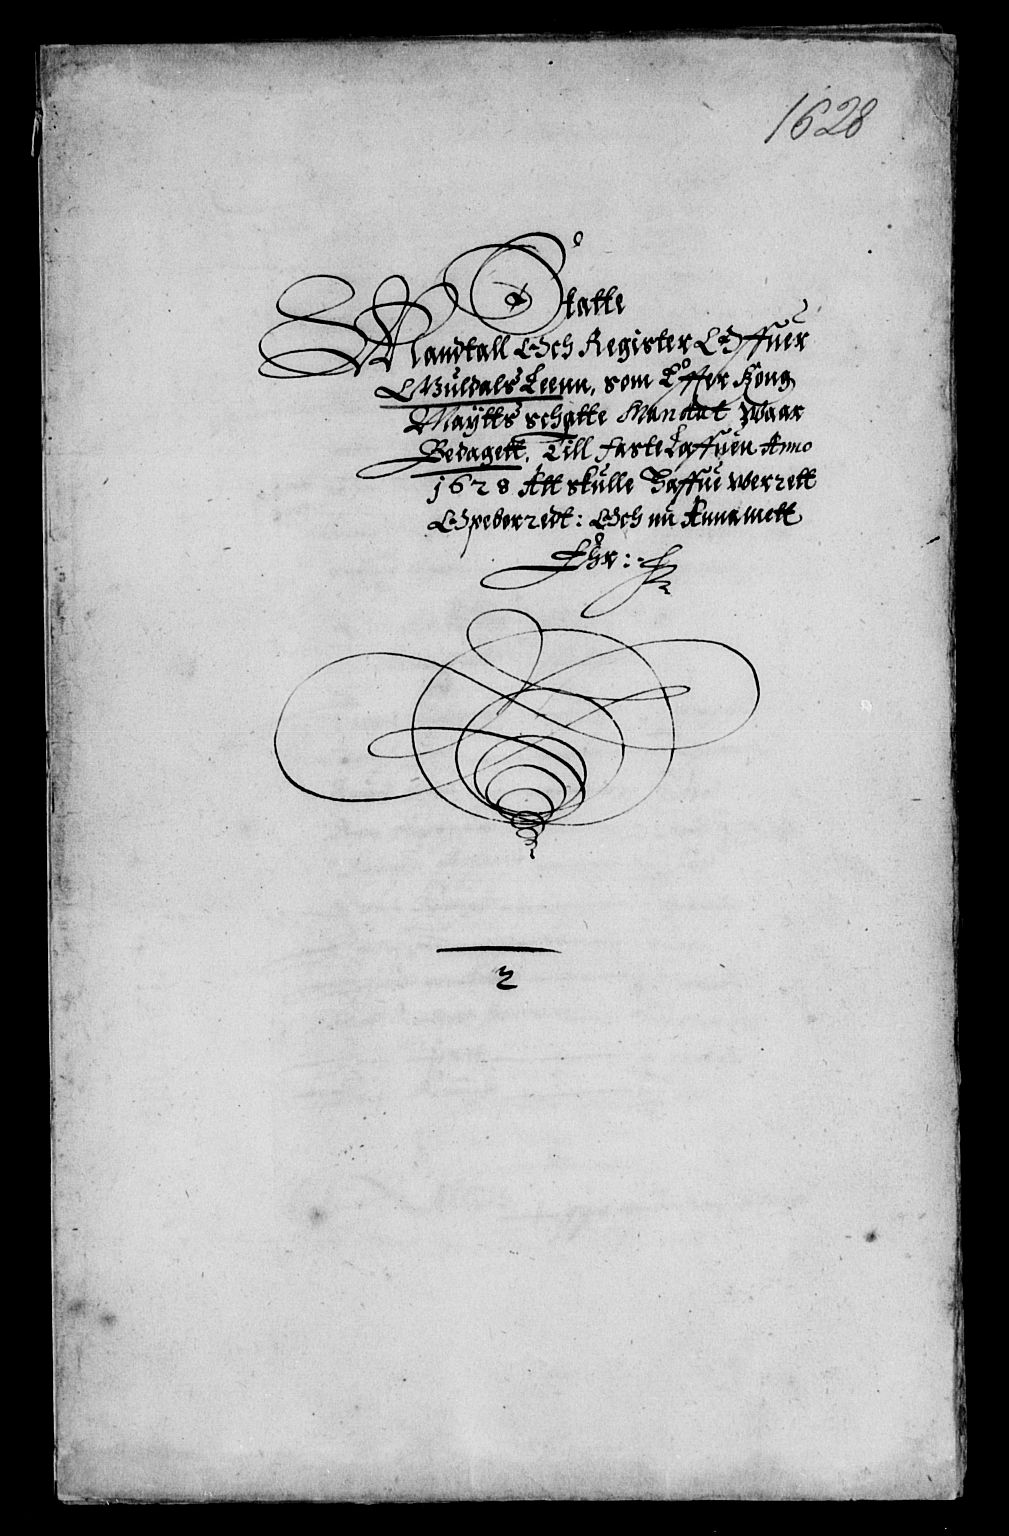 1628
Skatte
Mandtall Och Register Offuer
Guldals Leenn, som Effter Kong
Maÿtts schatte Mandat Waar
Bedagett, Till fastelaffuen Anno
1628 Att skulle haffue werrett
Opeborredt: Och nu Annamett
Ehr:
2